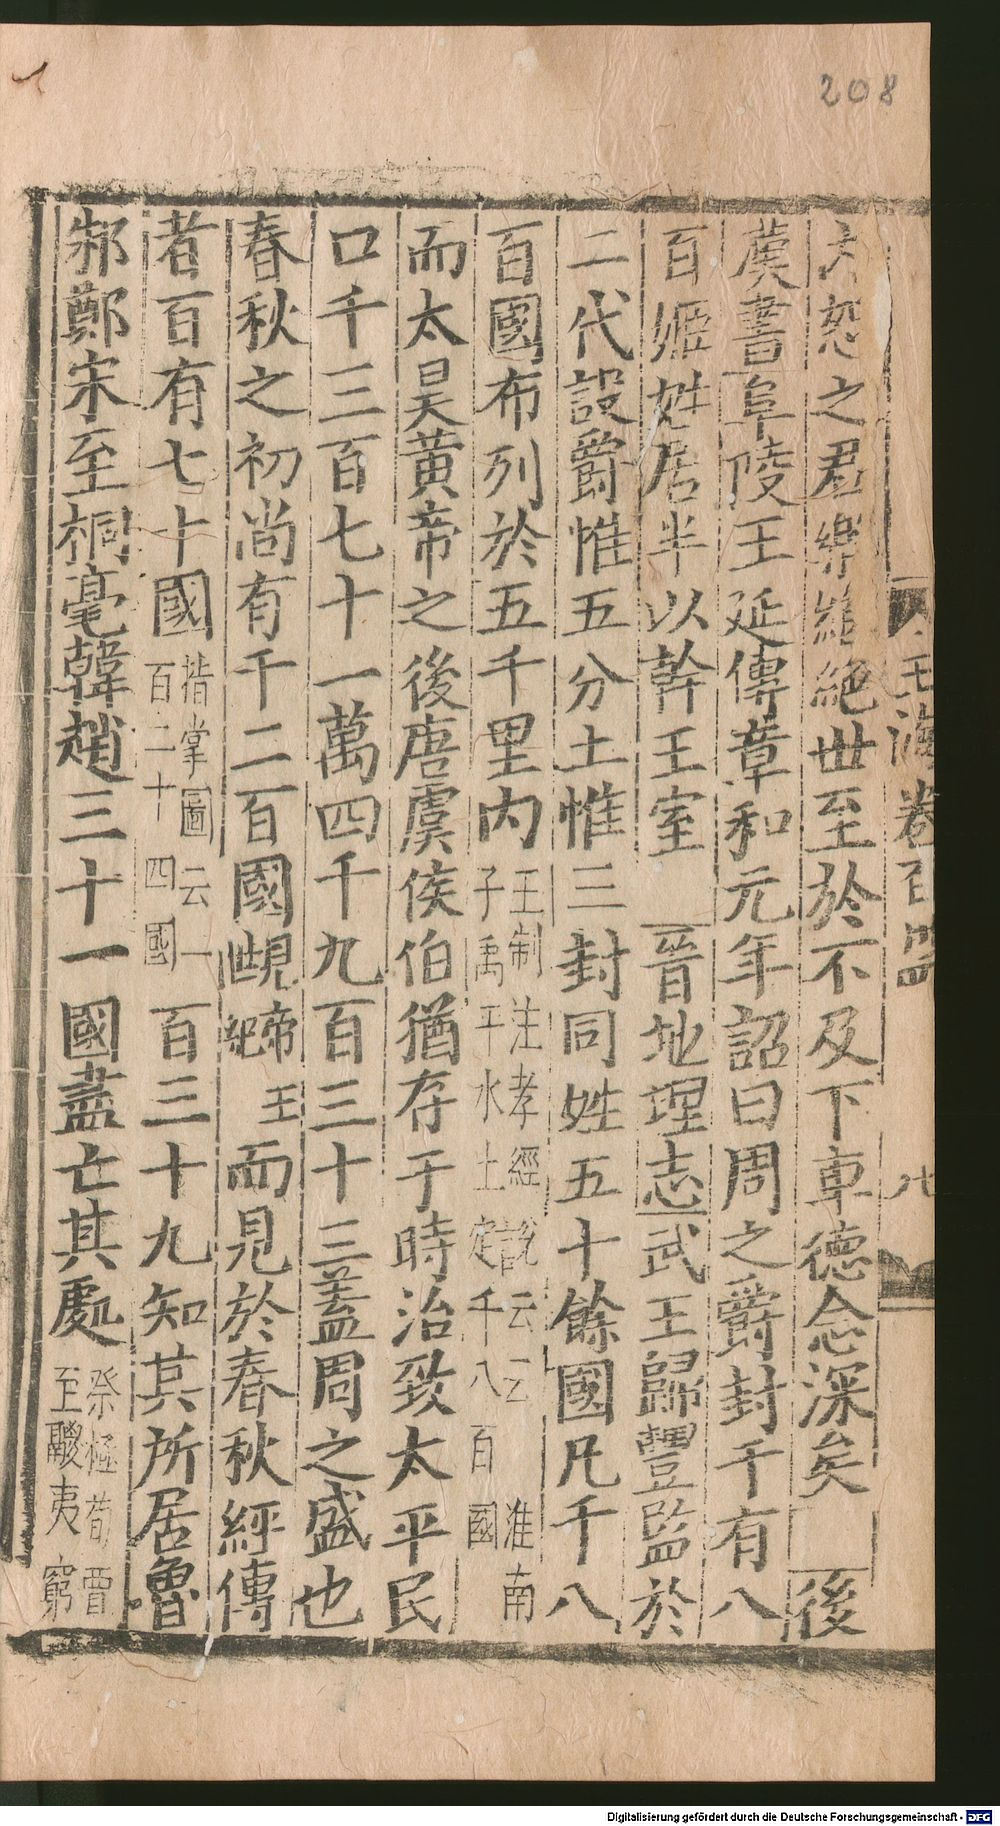 208
玉海卷百
大恕之君樂繼絕世至於不及下車德念深矣　後
漢書阜陵王延傳章和元年詔曰周之爵封千有八
百姬姓居半以幹王室　晉地理志武王歸豐監於
二代設爵惟五分土惟三封同姓五十餘國凡千八
百國布列於五千里內 王制注孝經說云云 淮南子禹平水土定千八百國
而太昊黃帝之後唐虞侯伯猶存于時治致太平民
口千三百七十一萬四千九百三十三蓋周之盛也
春秋之初尚有千二百國 帝王紀 而見於春秋經傳
者百有七十國 指掌圖云一百二十四國 百三十九知其所居魯
邾鄭宋至桐亳韓趙三十一國盡亡其處 祭極荀賈至鬷夷窮
Digitalisierung gefördert durch die Deutsche Forschungsgemeinschaft - DFG